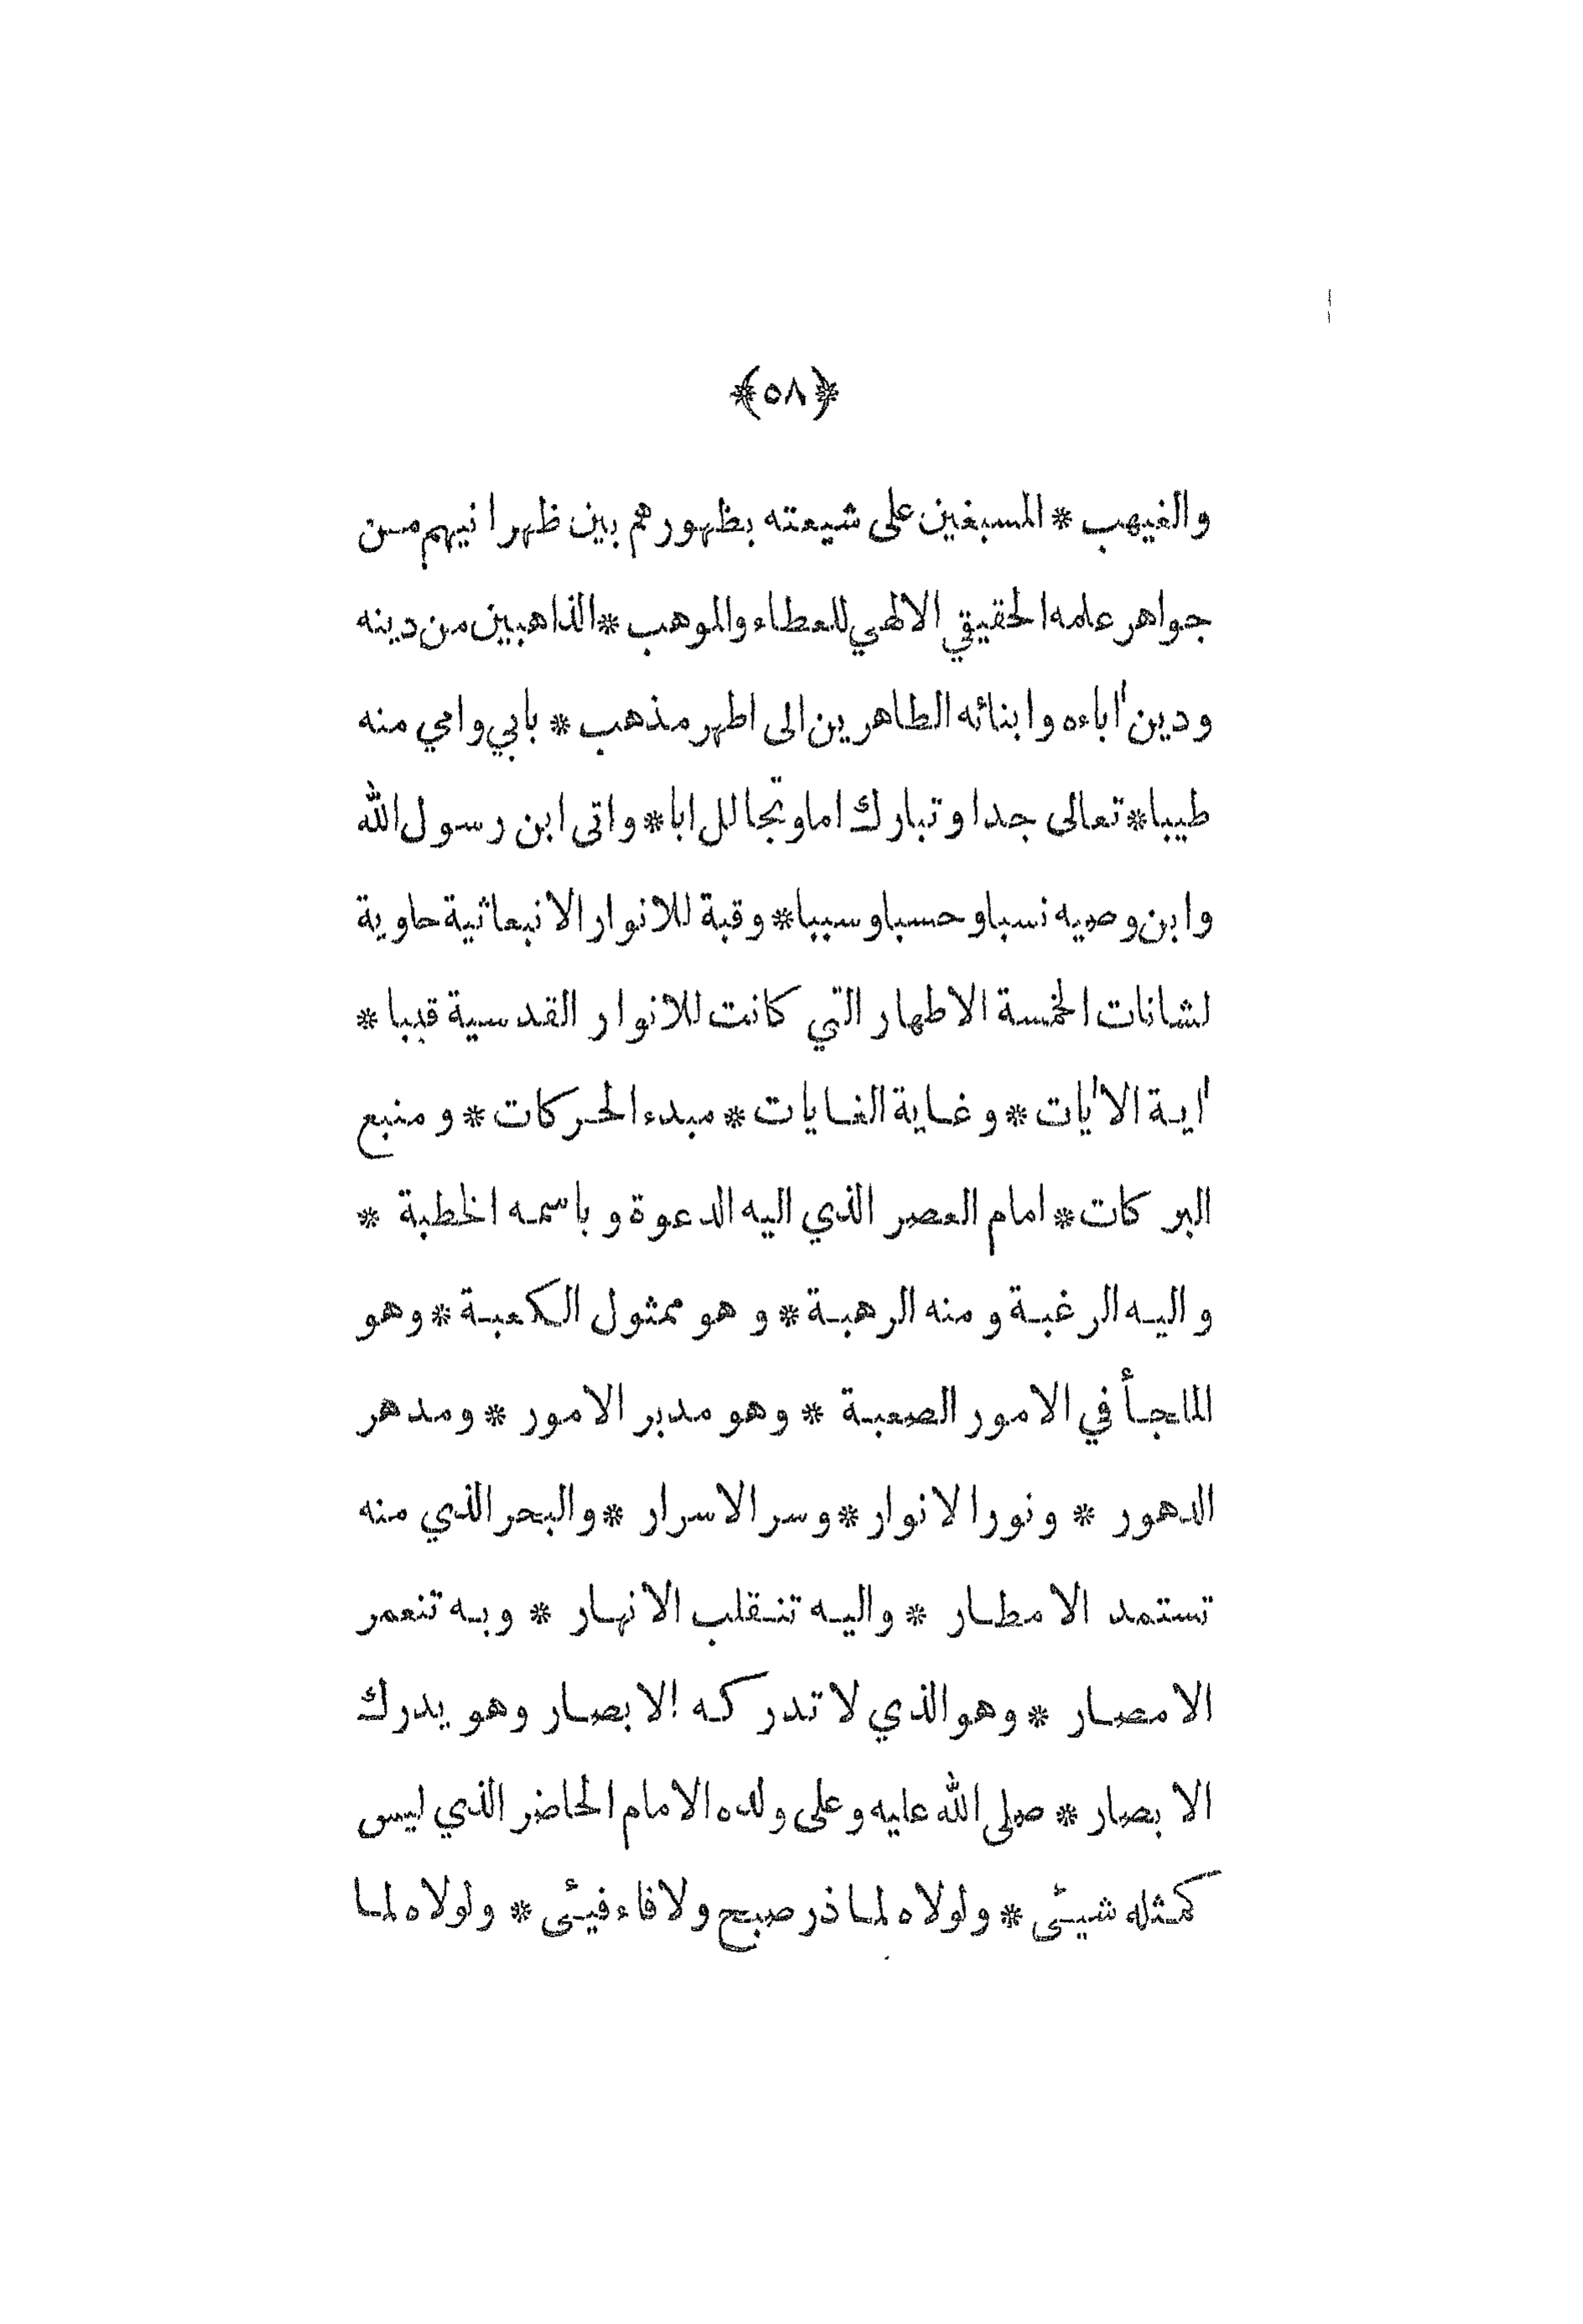 ﴿٥٨﴾
والغيهب * المسبغين على شيعته بظهورهم بين ظهرانيهم من
جواهر علمه الحقيقي الالهي للعطاء والموهب * الذاهبين من دينه
ودين اٰباءه وابنائه الطاهرين الى اطهر مذهب * بابي وامي منه
طيبا * تعالى جدا وتبارك اما وتجالل ابا * واتى ابن رسول الله
وابن وصيه نسبا وحسبا وسببا * وقبة للانوار الانبعاثية حاوية
لشانات الخمسة الاطهار التي كانت للانوار القدسية قببا *
اٰية الاٰيات * وغاية الغايات * مبدء الحركات * ومنبع
البركات * امام العصر الذي اليه الدعوة وباسمه الخطبة *
واليه الرغبة ومنه الرهبة * وهو ممثول الكعبة * وهو
الملجأ في الامور الصعبة * وهو مدبر الامور * ومدهر
الدهور * ونور الانوار * وسر الاسرار * والبحر الذي منه
تستمد الامطار * واليه تنقلب الانهار * وبه تنعمر
الامصار * وهو الذي لا تدركه الابصار وهو يدرك
الابصار * صلى الله عليه وعلى ولده الامام الحاضر الذي ليس
كمثله شيئ * ولولاه لما ذر صبح ولا فاء فيئ * ولولاه لما